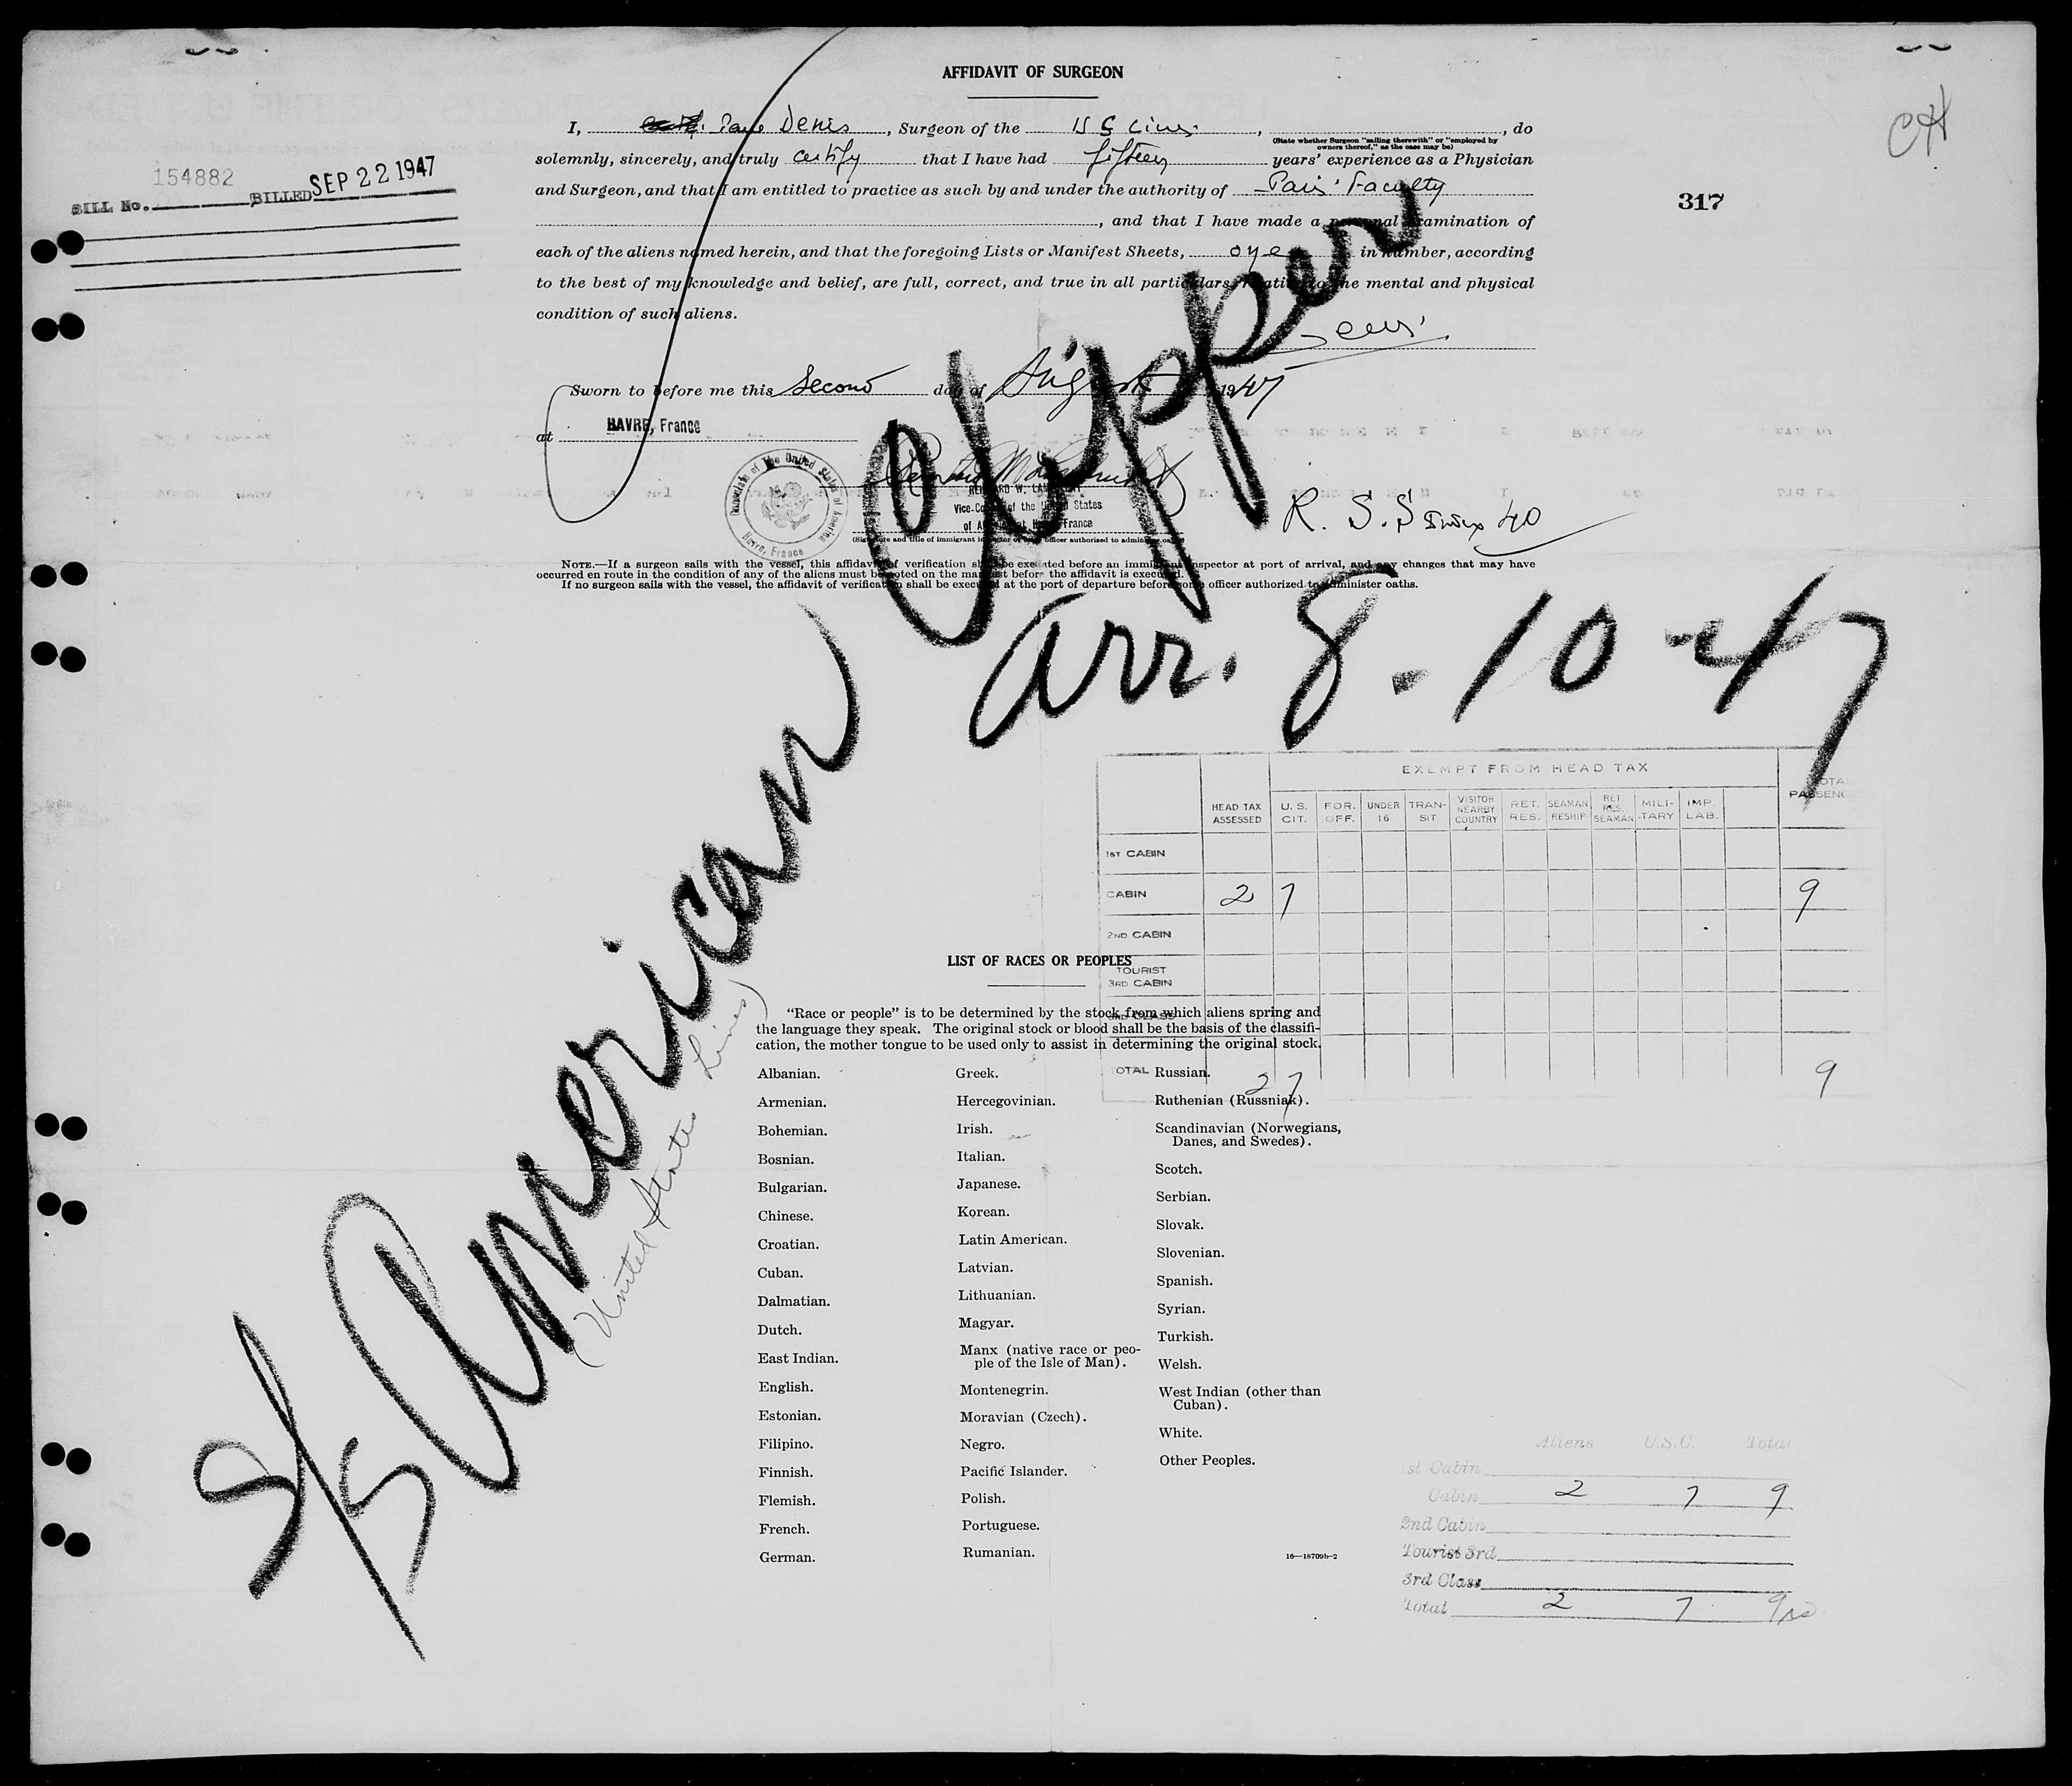 AFFIDAVIT OF SURGEON
I, Denis, Surgeon of the U S Lines, , do
(State whether Surgeon "sailing therewith" or "employed by owners thereof," as the case may be)
solemnly, sincerely, and truly certify that I have had fifteen years' experience as a Physician
and Surgeon, and that I am entitled to practice as such by and under the authority of Paris' Faculty
, and that I have made a personal examination of
each of the aliens named herein, and that the foregoing Lists or Manifest Sheets, one in number, according
to the best of my knowledge and belief, are full, correct, and true in all particulars relative to the mental and physical
condition of such aliens.
Denis
CH
154882
BILL No. BILLED SEP 22 1947
317
Sworn to before me this Second day of August 1947
at HAVRE, France
Consulate of the United States of America
Havre, France
Vice-Consul of the United States
of America at Havre, France
(Signature and title of immigrant inspector or other officer authorized to administer oaths)
R. S. 40
NOTE.—If a surgeon sails with the vessel, this affidavit of verification shall be executed before an immigrant inspector at port of arrival, and any changes that may have
occurred en route in the condition of any of the aliens must be noted on the manifest before the affidavit is executed.
If no surgeon sails with the vessel, the affidavit of verification shall be executed at the port of departure before some officer authorized to administer oaths.
S/S American Clipper
(United States Lines)
arr. 8-10-47
EXEMPT FROM HEAD TAX
HEAD TAX ASSESSED U. S. CIT. FOR. OFF. UNDER 16 TRANSIT VISITOR NEARBY COUNTRY RET. RES. SEAMAN RESHIP RET. RES. SEAMAN MILITARY IMP. LAB. TOTAL PASSENG
1ST CABIN
CABIN 2 7 9
2ND CABIN
TOURIST
3RD CABIN
3RD CLASS
TOTAL 2 7 9
LIST OF RACES OR PEOPLES
"Race or people" is to be determined by the stock from which aliens spring and
the language they speak. The original stock or blood shall be the basis of the classifi-
cation, the mother tongue to be used only to assist in determining the original stock.
Albanian.
Armenian.
Bohemian.
Bosnian.
Bulgarian.
Chinese.
Croatian.
Cuban.
Dalmatian.
Dutch.
East Indian.
English.
Estonian.
Filipino.
Finnish.
Flemish.
French.
German.
Greek.
Hercegovinian.
Irish.
Italian.
Japanese.
Korean.
Latin American.
Latvian.
Lithuanian.
Magyar.
Manx (native race or peo-
ple of the Isle of Man).
Montenegrin.
Moravian (Czech).
Negro.
Pacific Islander.
Polish.
Portuguese.
Rumanian.
Russian.
Ruthenian (Russniak).
Scandinavian (Norwegians,
Danes, and Swedes).
Scotch.
Serbian.
Slovak.
Slovenian.
Spanish.
Syrian.
Turkish.
Welsh.
West Indian (other than
Cuban).
White.
Other Peoples.
16—18709b-2
Aliens U.S.C. Total
1st Cabin
Cabin 2 7 9
2nd Cabin
Tourist 3rd
3rd Class
Total 2 7 9